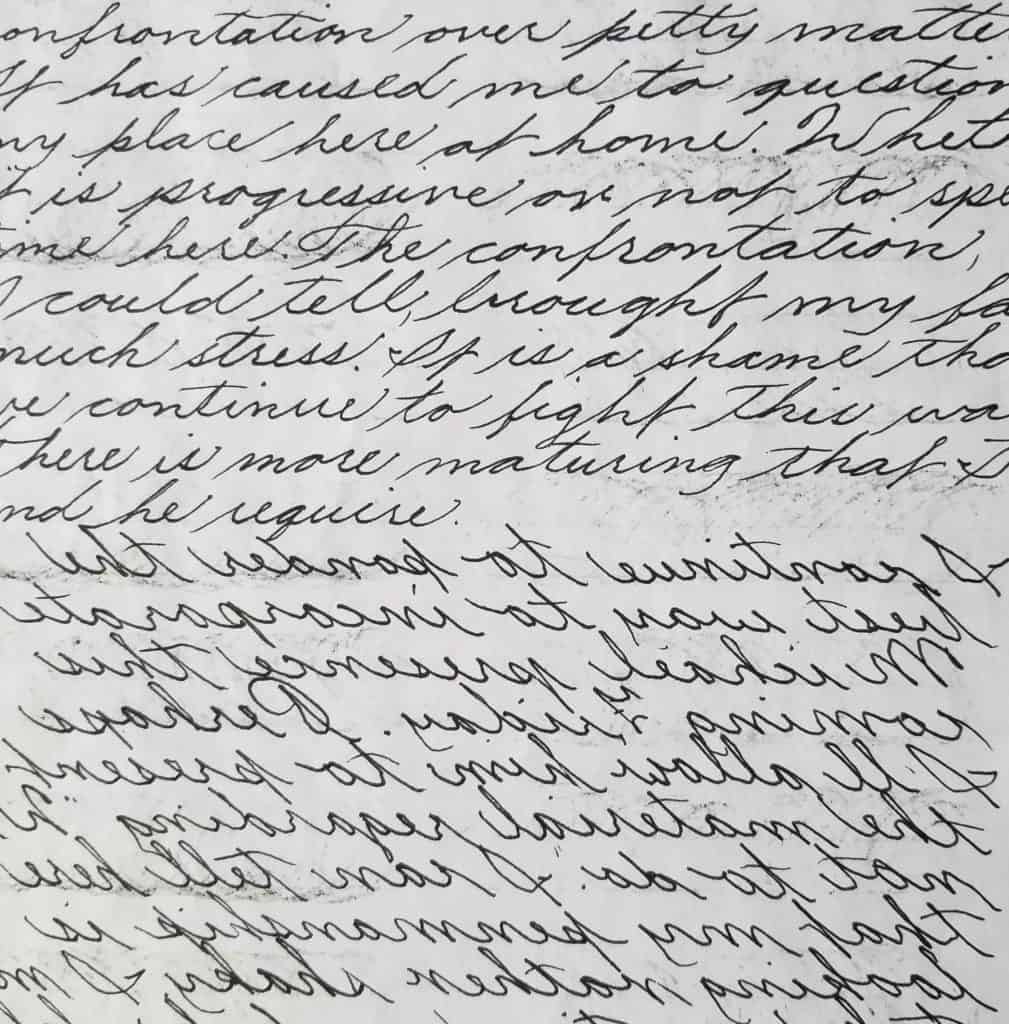 onfrontation over petty matte
It has caused me to question
my place here at home. Whet
it is progressive or not to spe
ime here. The confrontation,
I could tell, brought my fa
much stress. It is a shame tha
we continue to fight this wa
There is more maturing that I
nd he require.
I continue to ponder the
best way to incorporate
Michael's presence this
coming Friday. Perhaps
I'll allow him to present
the material regarding
not to do. I can tell here
that my penmanship is
looking rather shaky. I